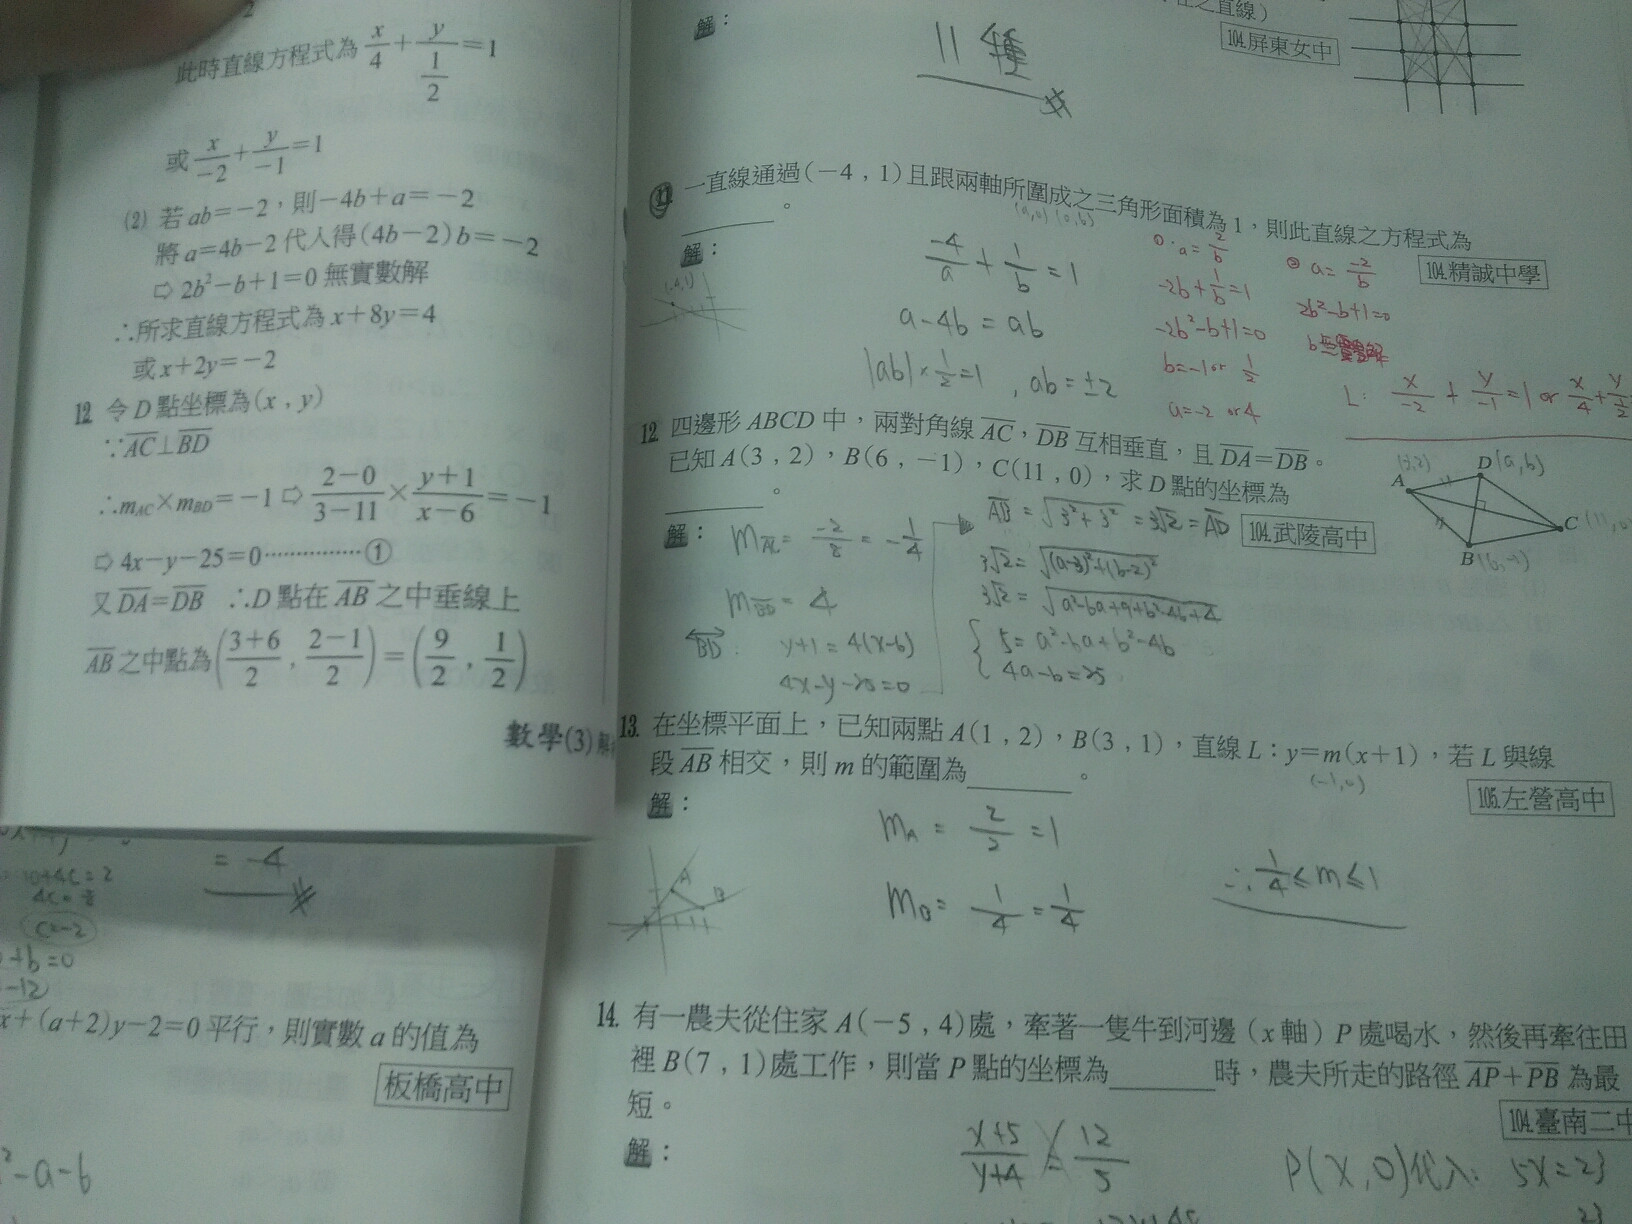 此時直線方程式為 x/4 + y/(1/2) = 1
或 x/-2 + y/-1 = 1
(2) 若 ab=-2,則-4b+a=-2
將 a=4b-2 代入得(4b-2)b=-2
⇨ 2b²-b+1=0 無實數解
∴所求直線方程式為 x+8y=4
或 x+2y=-2
12 令 D 點坐標為(x , y)
∵AC⊥BD
∴mAC×mBD=-1 ⇨ (2-0)/(3-11) × (y+1)/(x-6) = -1
⇨ 4x-y-25=0……………①
又 DA=DB ∴D 點在 AB 之中垂線上
AB 之中點為((3+6)/2 , (2-1)/2) = (9/2 , 1/2)
數學(3)
= -4
4C=
C=-2
+b=0
-12)
x+(a+2)y-2=0 平行,則實數 a 的值為
板橋高中
²-a-b
之直線)
104.屏東女中
解:
11 種
11. 一直線通過(-4 , 1)且跟兩軸所圍成之三角形面積為 1,則此直線之方程式為
(a,0) (0,b)
。
104.精誠中學
解:
(-4,1)
-4/a + 1/b = 1
a-4b = ab
|ab|×1/2=1 , ab=±2
① a=2/b
-2b+1/b=1
-2b²-b+1=0
b=-1 or 1/2
a=-2 or 4
② a=-2/b
2b²-b+1=0
L: x/-2 + y/-1 = 1 or x/4 + y/(1/2)
12 四邊形 ABCD 中,兩對角線 AC,DB 互相垂直,且 DA=DB。
已知 A(3 , 2),B(6 , -1),C(11 , 0),求 D 點的坐標為
。
104.武陵高中
解:
(3,2)
A
D(a,b)
C(11,0
B(6,-1)
mAC = -2/8 = -1/4
mBD = 4
BD: y+1=4(x-6)
4x-y-25=0
AB = √(3²+3²) = 3√2 = AD
3√2 = √((a-3)²+(b-2)²)
3√2 = √(a²-6a+9+b²-4b+4)
5=a²-6a+b²-4b
4a-b=25
13. 在坐標平面上,已知兩點 A(1 , 2),B(3 , 1),直線 L:y=m(x+1),若 L 與線
(-1,0)
段 AB 相交,則 m 的範圍為 。
105.左營高中
解:
A
B
mA = 2/2 = 1
mB = 1/4 = 1/4
∴ 1/4 ≤ m ≤ 1
14. 有一農夫從住家 A(-5 , 4)處,牽著一隻牛到河邊(x 軸)P 處喝水,然後再牽往田
裡 B(7 , 1)處工作,則當 P 點的坐標為 時,農夫所走的路徑 AP+PB 為最
短。
104.臺南二中
解:
(x+5)/(y+4) = 12/5
P(x,0)代入: 5x=23